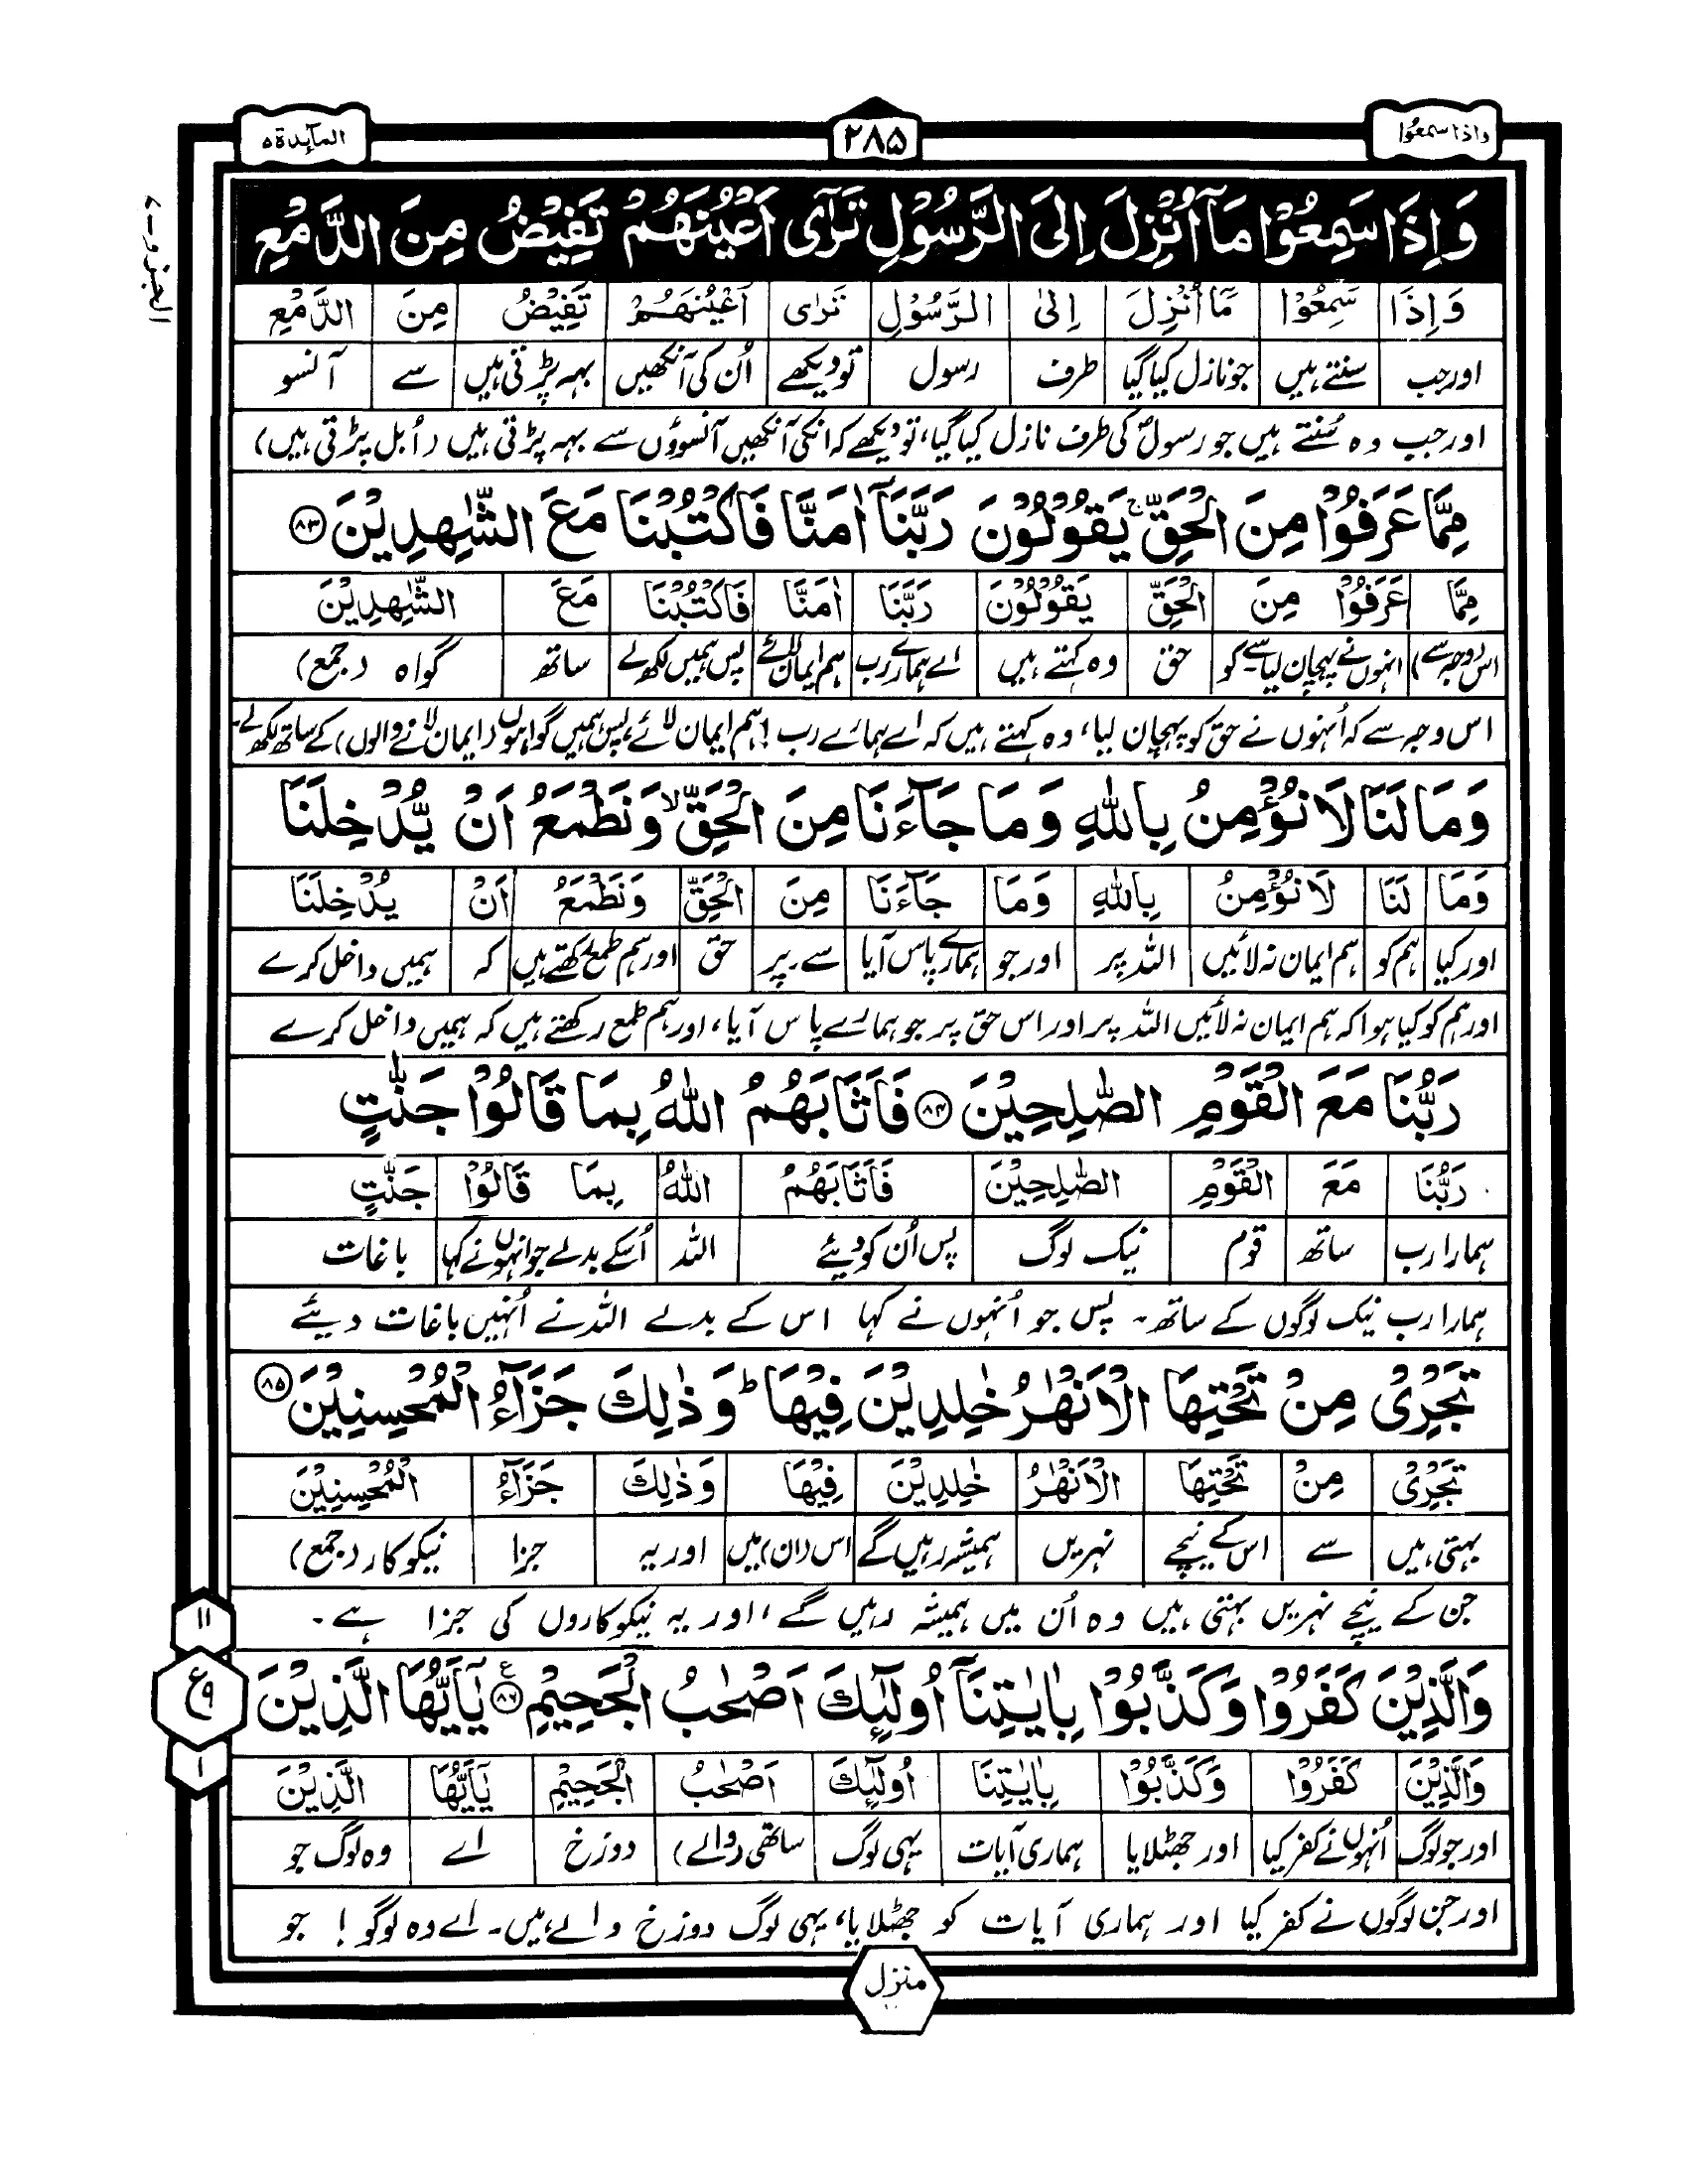 واذا سمعوا
۲۸۵
المآئدة ۵
الجزو ـ ۷
وَاِذَا سَمِعُوْا مَآ اُنْزِلَ اِلَى الرَّسُوْلِ تَرٰٓى اَعْيُنَهُمْ تَفِيْضُ مِنَ الدَّمْعِ
وَاِذَا سَمِعُوْا مَآ اُنْزِلَ اِلَى الرَّسُوْلِ تَرٰى اَعْيُنَهُمْ تَفِيْضُ مِنَ الدَّمْعِ
اور جب سنتے ہیں جو نازل کیا گیا طرف رسول تو دیکھے اُن کی آنکھیں بہہ پڑتی ہیں سے آنسو
اور جب وہ سُنتے ہیں جو رسولؐ کی طرف نازل کیا گیا، تو دیکھے کہ انکی آنکھیں آنسوؤں سے بہہ پڑتی ہیں (اُبل پڑتی ہیں)
مِمَّا عَرَفُوْا مِنَ الْحَقِّ ۚ يَقُوْلُوْنَ رَبَّنَآ اٰمَنَّا فَاكْتُبْنَا مَعَ الشّٰهِدِيْنَ ﴿۸۳﴾
مِمَّا عَرَفُوْا مِنَ الْحَقِّ يَقُوْلُوْنَ رَبَّنَا اٰمَنَّا فَاكْتُبْنَا مَعَ الشّٰهِدِيْنَ
اس (وجہ سے) انہوں نے پہچان لیا سے۔ کو حق وہ کہتے ہیں اے ہمارے رب ہم ایمان لائے پس ہمیں لکھ لے ساتھ گواہ (جمع)
اس وجہ سے کہ اُنہوں نے حق کو پہچان لیا، وہ کہتے ہیں کہ اے ہمارے رب! ہم ایمان لائے، پس ہمیں گواہوں (ایمان لانے والوں) کے ساتھ لکھ لے۔
وَمَا لَنَا لَا نُؤْمِنُ بِاللّٰهِ وَمَا جَآءَنَا مِنَ الْحَقِّ ۙ وَنَطْمَعُ اَنْ يُّدْخِلَنَا
وَمَا لَنَا لَا نُؤْمِنُ بِاللّٰهِ وَمَا جَآءَنَا مِنَ الْحَقِّ وَنَطْمَعُ اَنْ يُدْخِلَنَا
اور کیا ہم کو ہم ایمان نہ لائیں اللہ پر اور جو ہمارے پاس آیا سے۔پر حق اور ہم طمع رکھتے ہیں کہ ہمیں داخل کرے
اور ہم کو کیا ہوا کہ ہم ایمان نہ لائیں اللہ پر اور اس حق پر جو ہمارے پاس آیا، اور ہم طمع رکھتے ہیں کہ ہمیں داخل کرے
رَبُّنَا مَعَ الْقَوْمِ الصّٰلِحِيْنَ ﴿۸۴﴾ فَاَثَابَهُمُ اللّٰهُ بِمَا قَالُوْا جَنّٰتٍ
رَبُّنَا مَعَ الْقَوْمِ الصّٰلِحِيْنَ فَاَثَابَهُمُ اللّٰهُ بِمَا قَالُوْا جَنّٰتٍ
ہمارا رب ساتھ قوم نیک لوگ پس اُن کو دیئے اللہ اُسکے بدلے جو انہوں نے کہا باغات
ہمارا رب نیک لوگوں کے ساتھ۔ پس جو اُنہوں نے کہا اس کے بدلے اللہ نے اُنہیں باغات دیئے
تَجْرِيْ مِنْ تَحْتِهَا الْاَنْهٰرُ خٰلِدِيْنَ فِيْهَا ؕ وَذٰلِكَ جَزَآءُ الْمُحْسِنِيْنَ ﴿۸۵﴾
تَجْرِيْ مِنْ تَحْتِهَا الْاَنْهٰرُ خٰلِدِيْنَ فِيْهَا وَذٰلِكَ جَزَآءُ الْمُحْسِنِيْنَ
بہتی ہیں سے اس کے نیچے نہریں ہمیشہ رہیں گے اس (ان) میں اور یہ جزا نیکوکار (جمع)
جن کے نیچے نہریں بہتی ہیں وہ اُن میں ہمیشہ رہیں گے، اور یہ نیکوکاروں کی جزا ہے۔
۱۱
ع ۹
۱
وَالَّذِيْنَ كَفَرُوْا وَكَذَّبُوْا بِاٰيٰتِنَآ اُولٰٓئِكَ اَصْحٰبُ الْجَحِيْمِ ﴿۸۶﴾ع يٰٓاَيُّهَا الَّذِيْنَ
وَالَّذِيْنَ كَفَرُوْا وَكَذَّبُوْا بِاٰيٰتِنَا اُولٰٓئِكَ اَصْحٰبُ الْجَحِيْمِ يٰٓاَيُّهَا الَّذِيْنَ
اور جو لوگ اُنہوں نے کفر کیا اور جھٹلایا ہماری آیات یہی لوگ ساتھی (والے) دوزخ اے وہ لوگ جو
اور جن لوگوں نے کفر کیا اور ہماری آیات کو جھٹلایا، یہی لوگ دوزخ والے ہیں۔ اے وہ لوگو! جو
منزل